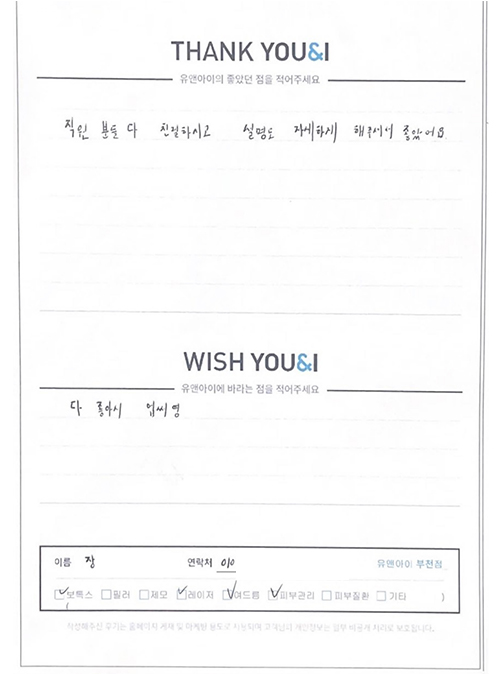 THANK YOU&I
유앤아이의 좋았던 점을 적어주세요
직원 분들 다 친절하시고 설명도 자세하시 해주셔서 좋았어요
WISH YOU&I
유앤아이에 바라는 점을 적어주세요
다 좋아서 업씨영
이름 장 연락처 010 유앤아이 부전점
보톡스 필러 제모 레이저 여드름 피부관리 피부질환 기타 ( )
작성해주신 후기는 홈페이지 게재 및 마케팅 용도로 사용되며 고객님의 개인정보는 일부 비공개 처리로 보호됩니다.